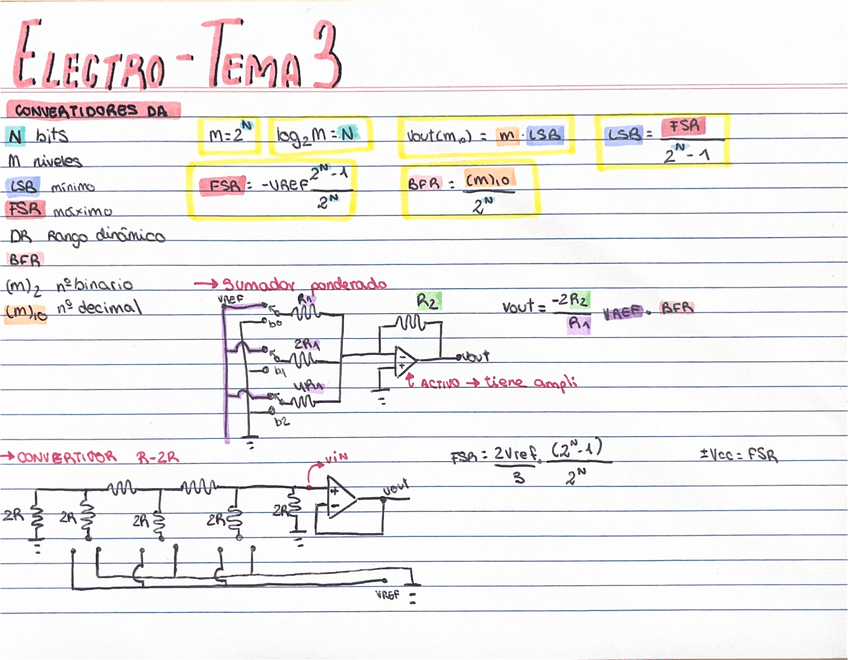 ELECTRO - TEMA 3
CONVERTIDORES DA
N bits
M niveles
LSB mínimo
FSR máximo
DR Rango dinámico
BFR
(m)₂ nº binario
(m)₁₀ nº decimal
M = 2^N
log₂M = N
Vout(m₁₀) = m · LSB
LSB = FSR / (2^N - 1)
FSR = -VREF (2^N - 1) / 2^N
BFR = (m)₁₀ / 2^N
→ Sumador ponderado
VREF
R1
b0
2R1
b1
4R1
b2
R2
-
+
Vout
↑ ACTIVO → tiene ampli
Vout = (-2R2 / R1) VREF · BFR
→ CONVERTIDOR R-2R
VIN
2R
2R
2R
2R
2R
+
-
Vout
VREF
FSR = (2Vref / 3) · (2^N - 1) / 2^N
±Vcc = FSR